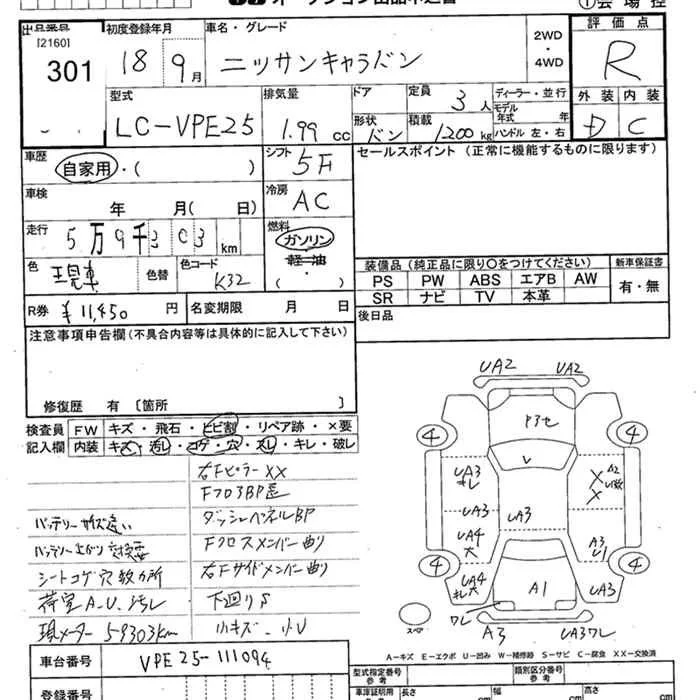 オークション出品申込書
①会場控
出品番号
[2160]
301
初度登録年月
18 9月
車名・グレード
ニッサンキャラバン
2WD
・
4WD
評価点
R
型式
LC-VPE25
排気量
1.99 cc
ドア
定員
3人
ディーラー・並行
モデル
年式 年
ハンドル 左・右
形状
バン
積載
1200kg
外装
D
内装
C
車歴
自家用・( )
シフト
5F
セールスポイント (正常に機能するものに限ります)
車検
年 月(日)
冷房
AC
走行
5万9千303km
燃料
ガソリン
軽油
・
( )
色
色替
色コード
K32
装備品(純正品に限り○をつけてください)
新車保証書
PS PW ABS エアB AW
SR ナビ TV 本革
有・無
R券 ¥11,450円
名変期限 月 日
後日品
注意事項申告欄(不具合内容等は具体的に記入して下さい)
修復歴 有〔箇所 〕
検査員
記入欄
FW キズ・飛石・ヒビ割・リペア跡・×要
内装 キズ・汚レ・コゲ・穴・スレ・キレ・破レ
右Fピラー XX
Fフロア BP
バッテリーサイズ違い
ダッシュパネルBP
バッテリー上がり 交換要
Fクロスメンバー曲り
シートコゲ穴数カ所
右Fサイドメンバー曲り
荷室A.U.汚レ
下廻りS
現メーター 59303km
小キズ・小U
UA2 UA2
P3セ
4 4
UA3
キレ
A2
X
X
UA3
UA4
大
A3
U1
4 4
UA4
キレ大
A1
UA3
ワレ
スペア
A3
UA3ワレ
A-キズ E-エクボ U-凹み W-補修跡 S-サビ C-腐食 XX-交換済
車台番号
VPE25-111094
登録番号
型式指定番号
参考
類別区分番号
参考
車庫証明用
参考
長さ
cm
幅
cm
高さ
cm